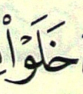 خَلَوْاْ